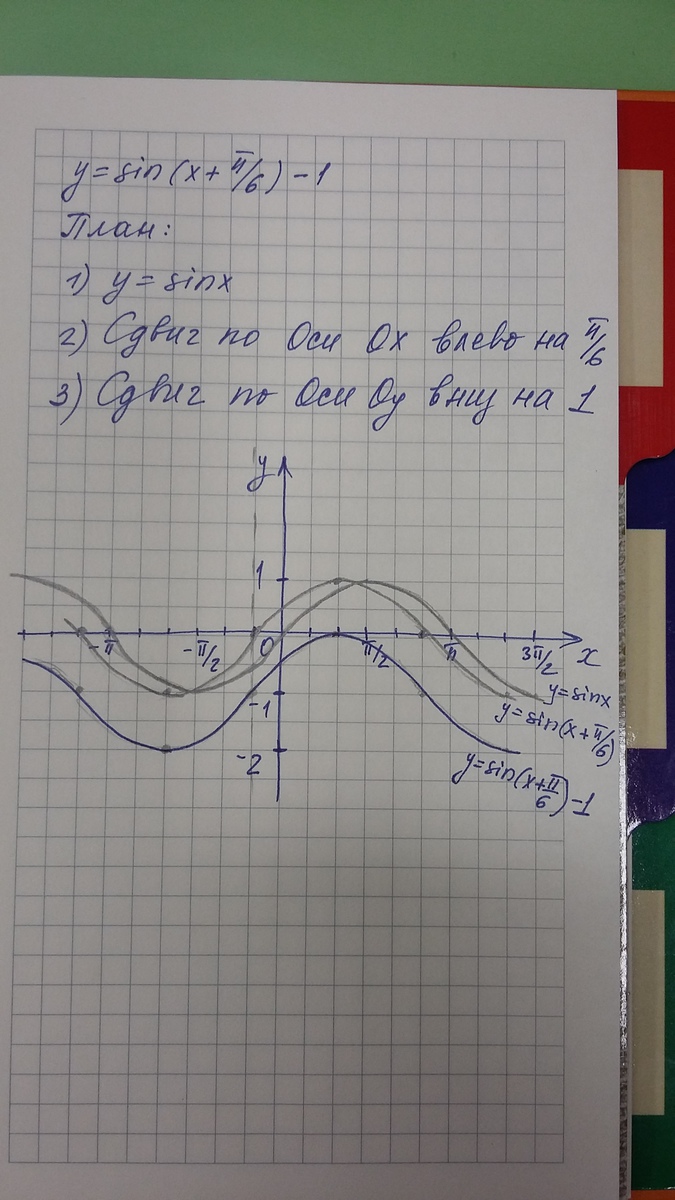 y=sin(x+π/6)-1
План:
1) y=sinx
2) Сдвиг по Оси Ox влево на π/6
3) Сдвиг по Оси Oy вниз на 1
y
1
-π
-π/2
0
π/2
π
3π/2
x
-1
y=sinx
y=sin(x+π/6)
-2
y=sin(x+π/6)-1